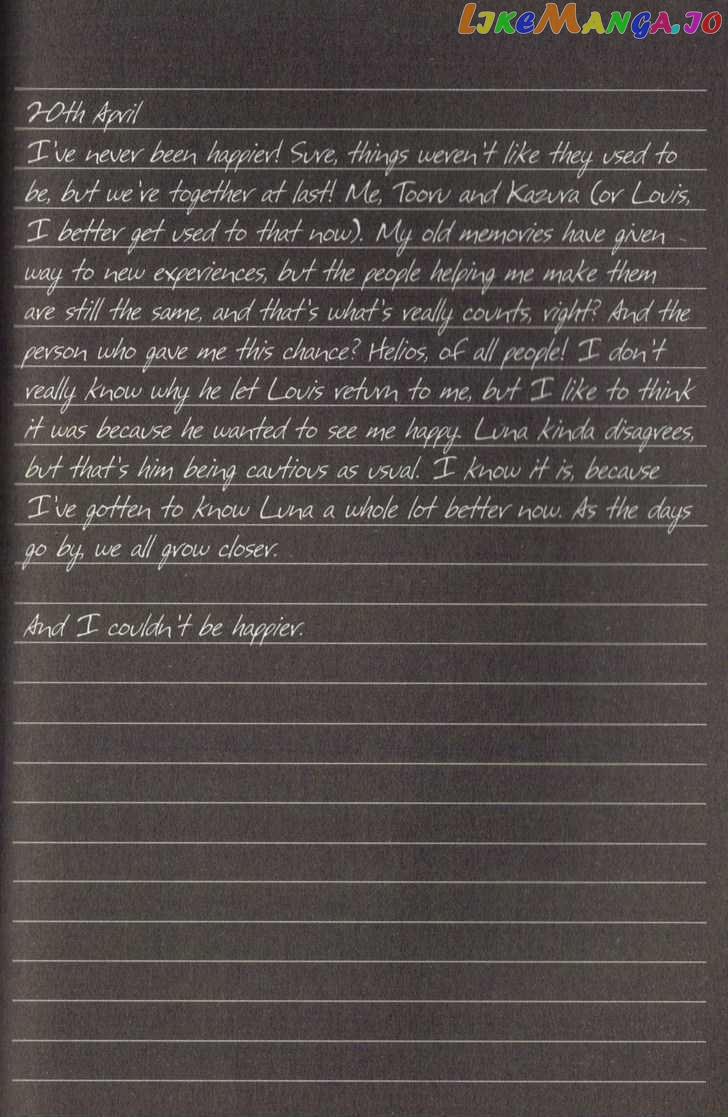 LIKEMANGA.IO
20th April
I've never been happier! Sure, things weren't like they used to
be, but we're together at last! Me, Tooru and Kazura (or Louis,
I better get used to that now). My old memories have given
way to new experiences, but the people helping me make them
are still the same, and that's what's really counts, right? And the
person who gave me this chance? Helios, of all people! I don't
really know why he let Louis return to me, but I like to think
it was because he wanted to see me happy. Luna kinda disagrees,
but that's him being cautious as usual. I know it is, because
I've gotten to know Luna a whole lot better now. As the days
go by, we all grow closer.
And I couldn't be happier.